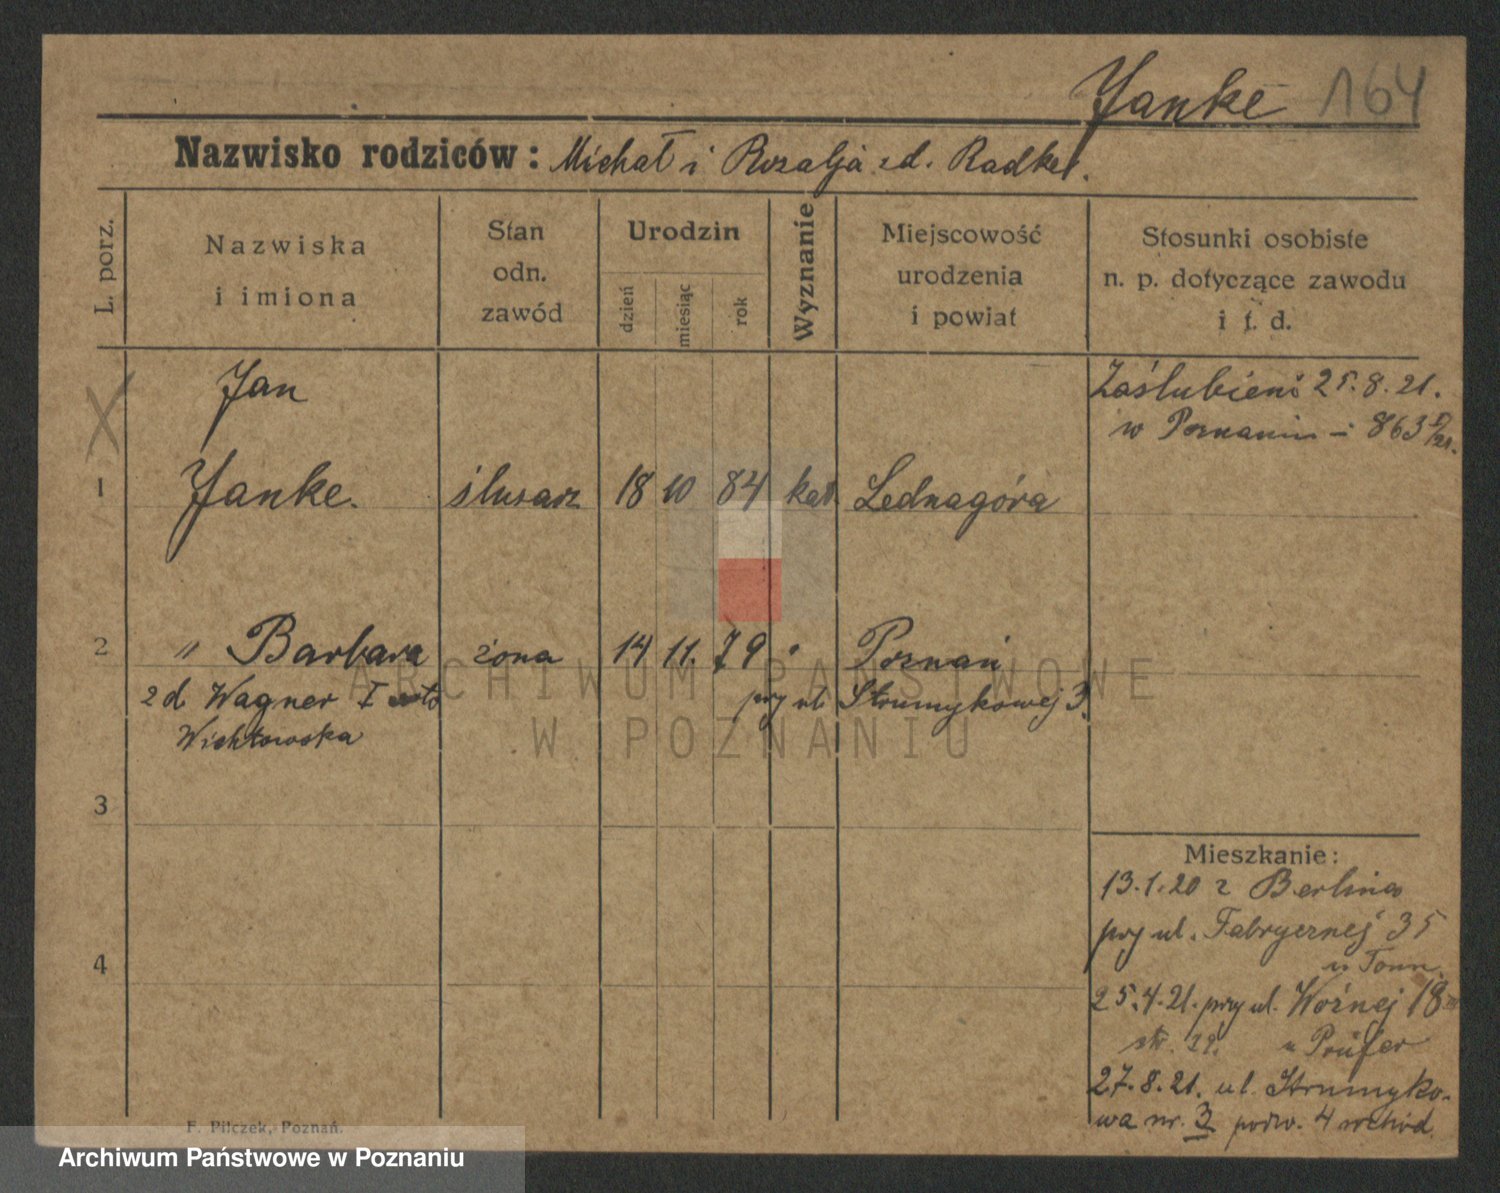 Janke 164
Nazwisko rodziców: Michał i Rozalja zd. Radke.
L. porz.
Nazwiska
i imiona
Stan
odn.
zawód
Urodzin
dzień
miesiąc
rok
Wyznanie
Miejscowość
urodzenia
i powiat
Stosunki osobiste
n. p. dotyczące zawodu
i t. d.
Jan
Zaślubieni 25.8.21.
w Poznaniu – 863
1 Janke. ślusarz 18 10 84 kat. Lednagóra
2 " Barbara żona 14 11. 79 " Poznań
zd Wagner I voto przy ul. Strumykowej 3.
Wichtowska
3
4
Mieszkanie:
13.1.20 z Berlina
przy ul. Fabrycznej 35
u
25.4.21. przy ul. Woźnej 18
u Prüfer
27.8.21. ul. Strumyko-
wa nr. 3 podw. 4 wchód
F. Pilczek, Poznań.
ARCHIWUM PAŃSTWOWE
W POZNANIU
Archiwum Państwowe w Poznaniu